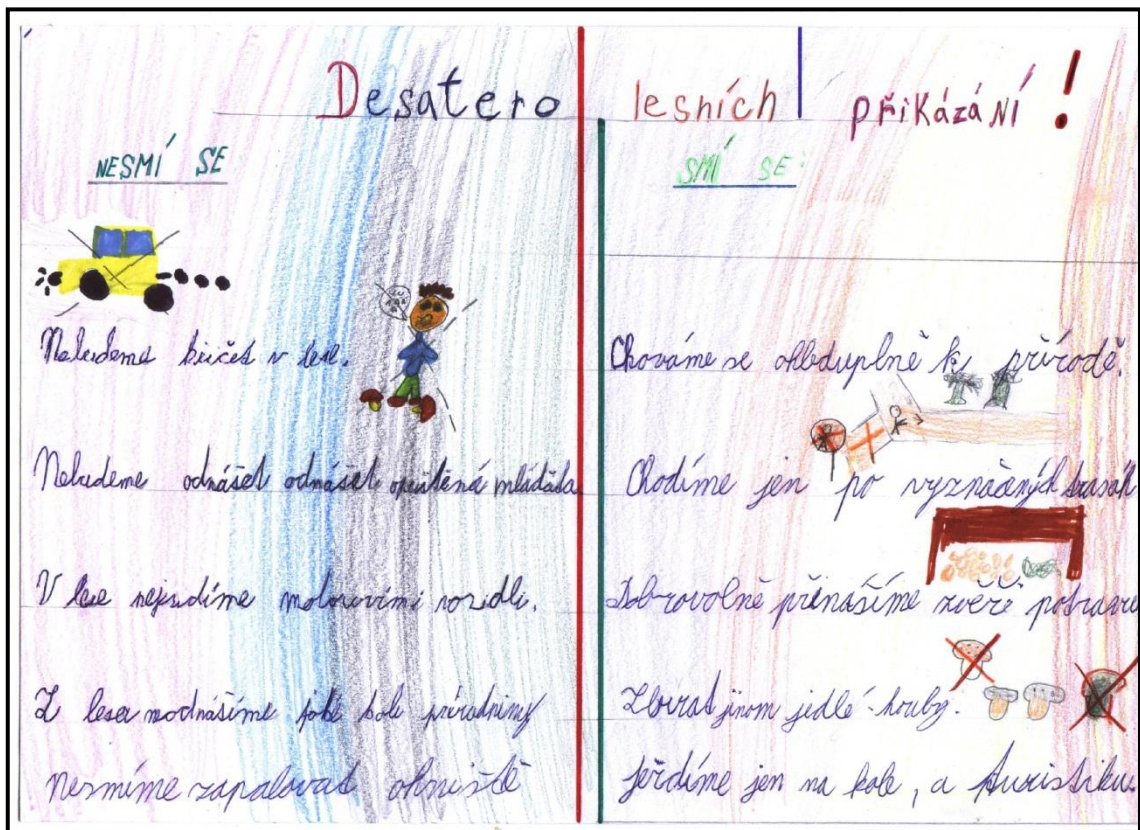 Desatero lesních přikázání!
NESMÍ SE
SMÍ SE:
Nebudeme křičet v lese.
Nebudeme odnášet odnášet opuštěná mláďata
V lese nejezdíme motorovími vozidli.
Z lesa neodnášíme přírodniny
Nesmíme zapalovat ohniště
Chováme se ohleduplně k přírodě.
Chodíme jen po vyznačených trasách
Dobrovolně přinášíme zvěři potravu
Zbírat jedlé houby.
Jezdíme jen na kole, a turistiku.